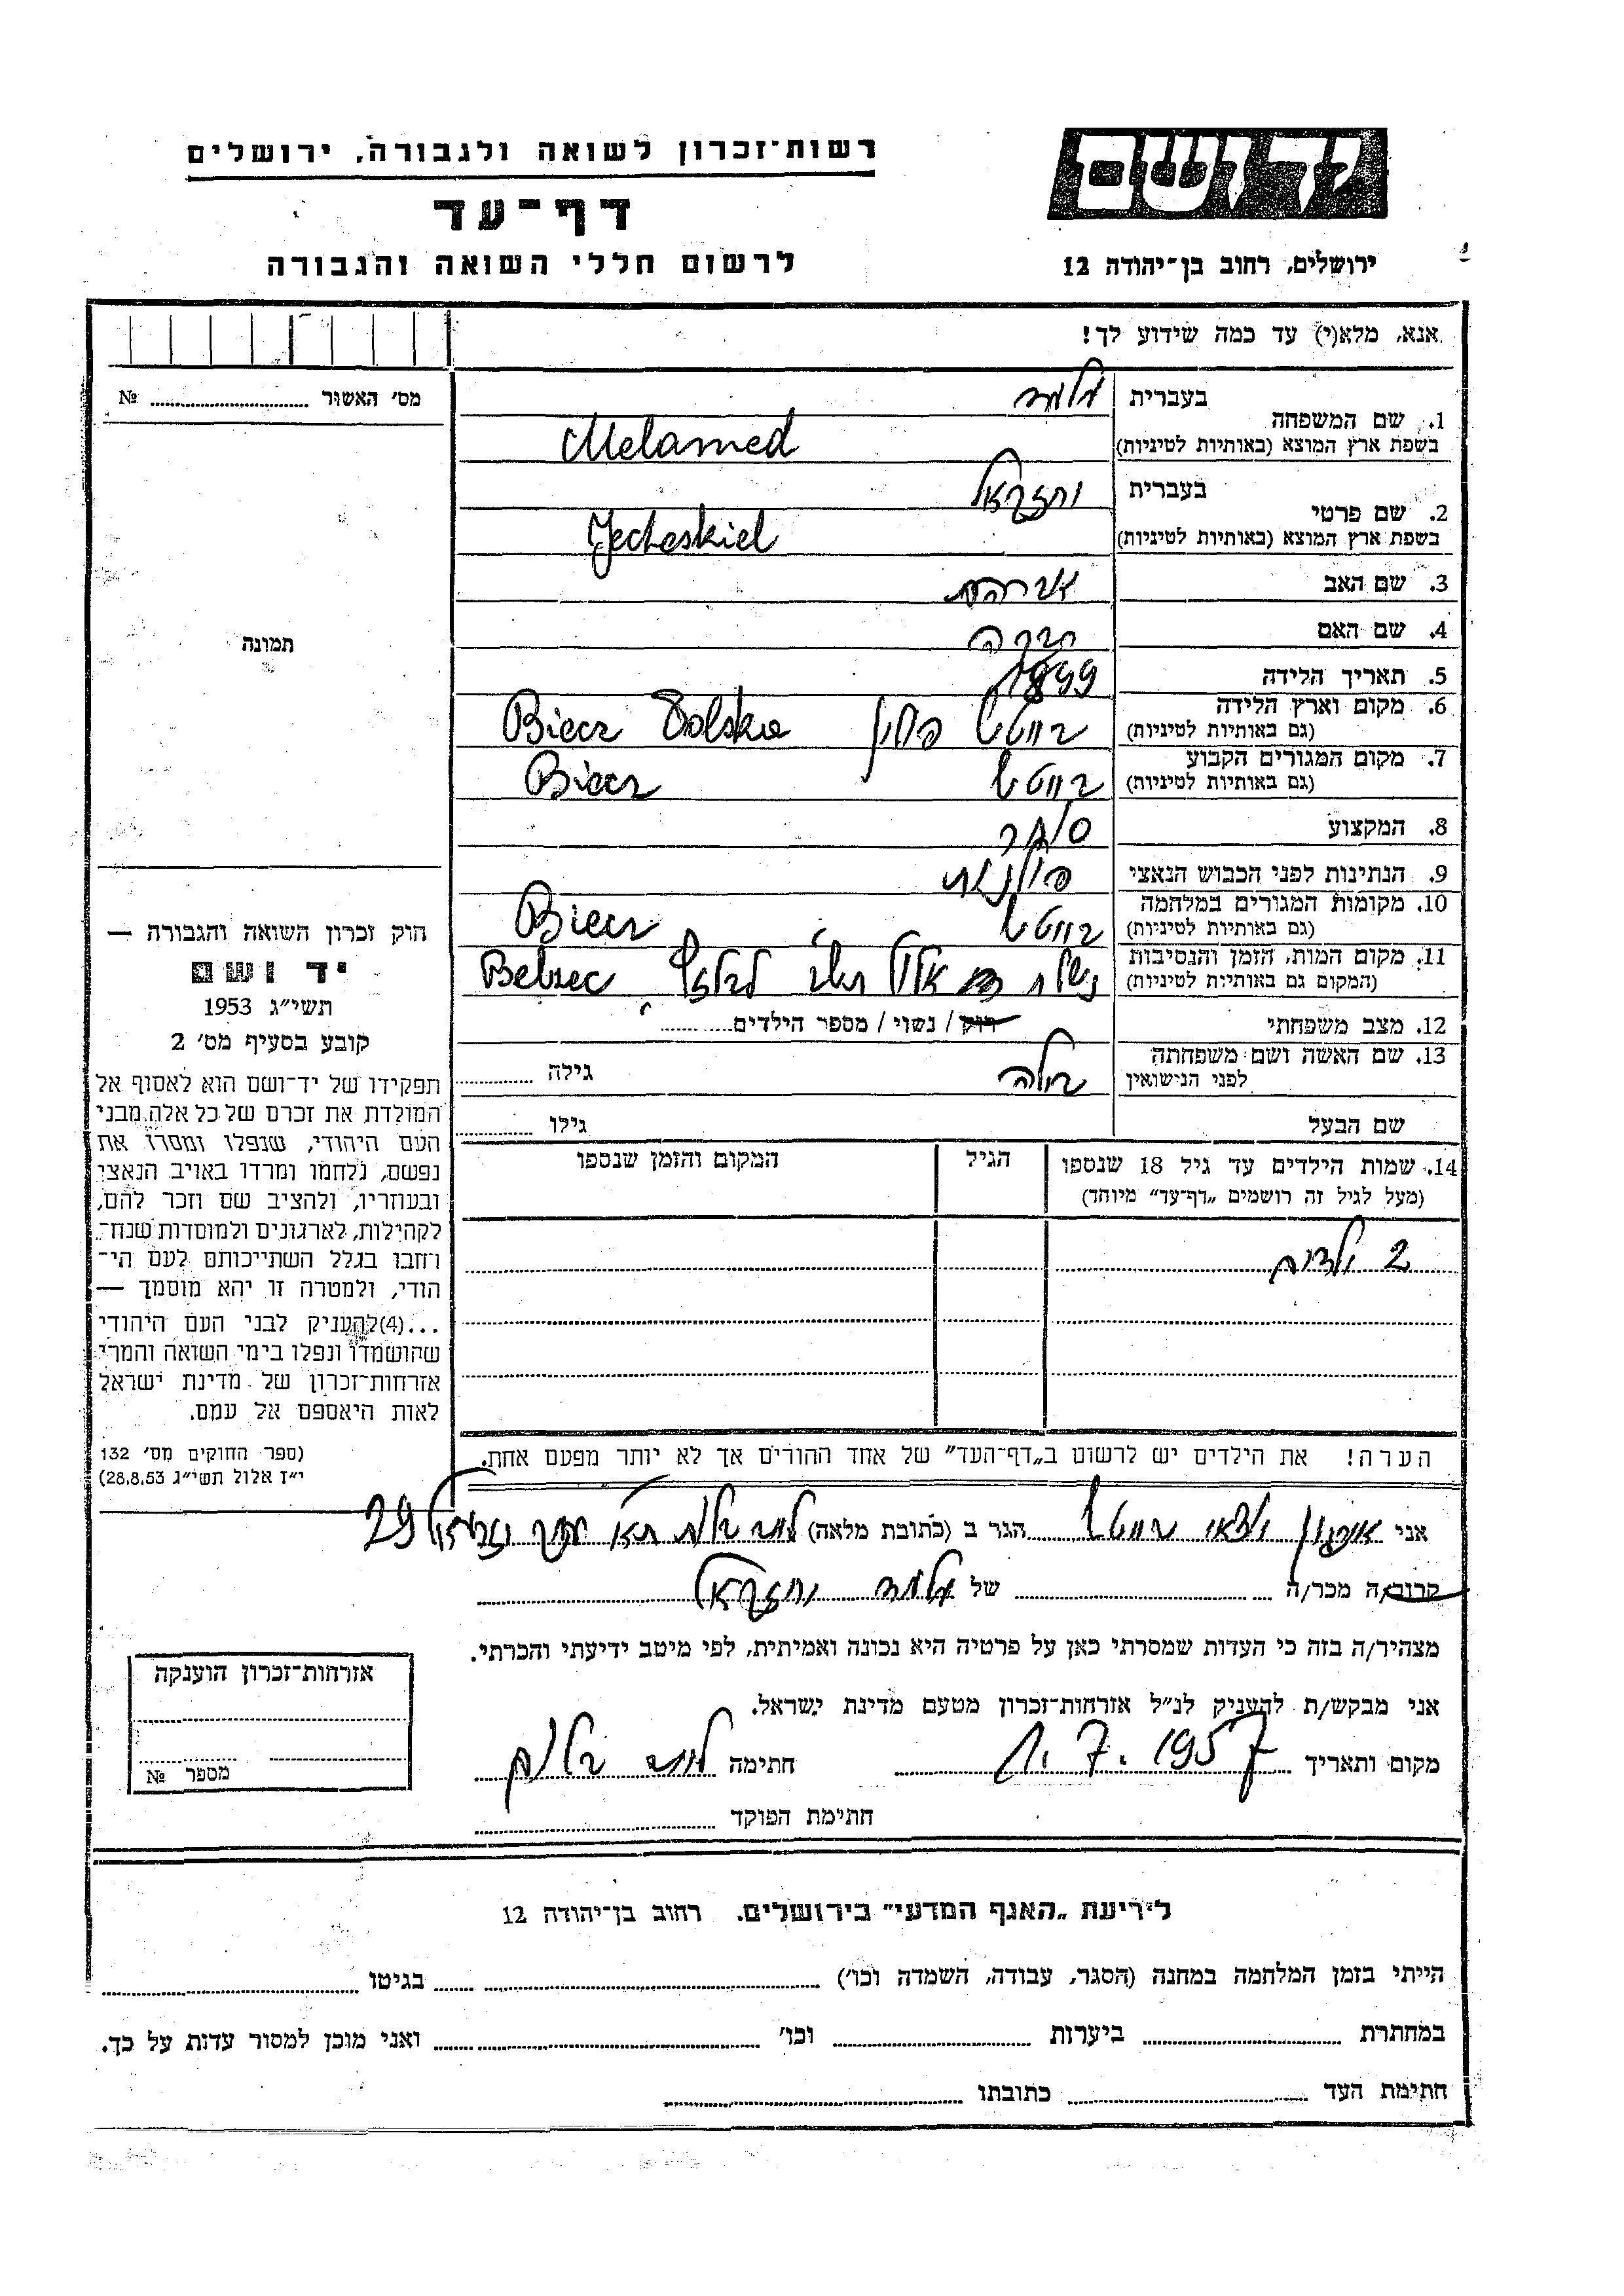 יד ושם
רשות־זכרון לשואה ולגבורה, ירושלים
דף־עד
ירושלים, רחוב בן־יהודה 12
לרשום חללי השואה והגבורה
אנא, מלא(י) עד כמה שידוע לך!
מס׳ האשור № ....................
תמונה
1. שם המשפחה
בעברית מלמד
בשפת ארץ המוצא (באותיות לטיניות) Melamed
2. שם פרטי
בעברית יחזקאל
בשפת ארץ המוצא (באותיות לטיניות) Jecheskiel
3. שם האב אברהם
4. שם האם רבקה
5. תאריך הלידה 1899
6. מקום וארץ הלידה
(גם באותיות לטיניות) בייטש פולין Biecz Polska
7. מקום המגורים הקבוע
(גם באותיות לטיניות) בייטש Biecz
8. המקצוע סוחר
9. הנתינות לפני הכבוש הנאצי פולנית
10. מקומות המגורים במלחמה
(גם באותיות לטיניות) בייטש Biecz
11. מקום המות, הזמן והנסיבות
(המקום גם באותיות לטיניות) נשלח אלול תש״ב לבלזץ Belzec
12. מצב משפחתי רווק / נשוי / מספר הילדים..............
13. שם האשה ושם משפחתה
לפני הנישואין בילה גילה ..............
שם הבעל גילו ..............
14. שמות הילדים עד גיל 18 שנספו הגיל המקום והזמן שנספו
(מעל לגיל זה רושמים „דף־עד״ מיוחד)
2 ילדים
הערה! את הילדים יש לרשום ב„דף־העד״ של אחד ההורים אך לא יותר מפעם אחת.
חוק זכרון השואה והגבורה —
יד ושם
תשי״ג 1953
קובע בסעיף מס׳ 2
תפקידו של יד־ושם הוא לאסוף אל
המולדת את זכרם של כל אלה מבני
העם היהודי, שנפלו ומסרו את
נפשם, נלחמו ומרדו באויב הנאצי
ובעוזריו, ולהציב שם וזכר להם,
לקהילות, לארגונים ולמוסדות שנח־
רחבו בגלל השתייכותם לעם הי־
הודי, ולמטרה זו יהא מוסמך —
...(4)להעניק לבני העם היהודי
שהושמדו ונפלו בימי השואה והמרי
אזרחות־זכרון של מדינת ישראל
לאות היאספם אל עמם.
(ספר החוקים מס׳ 132
י״ז אלול תשי״ג 28.8.53)
אני ארגון יוצאי בייטש הגר ב (כתובת מלאה) תא 29
קרוב/ה מכר/ה ............ של מלמד יחזקאל
מצהיר/ה בזה כי העדות שמסרתי כאן על פרטיה היא נכונה ואמיתית, לפי מיטב ידיעתי והכרתי.
אני מבקש/ת להעניק לנ״ל אזרחות־זכרון מטעם מדינת ישראל.
מקום ותאריך 1.7.1957 חתימה
חתימת הפוקד ....................
אזרחות־זכרון הוענקה
מספר №
לידיעת „האגף המדעי״ בירושלים. רחוב בן־יהודה 12
הייתי בזמן המלחמה במחנה (הסגר, עבודה, השמדה וכו׳) .................... בגיטו ....................
במחתרת .................... ביערות .................... וכו׳ .................... ואני מוכן למסור עדות על כך.
חתימת העד .................... כתובתו ....................